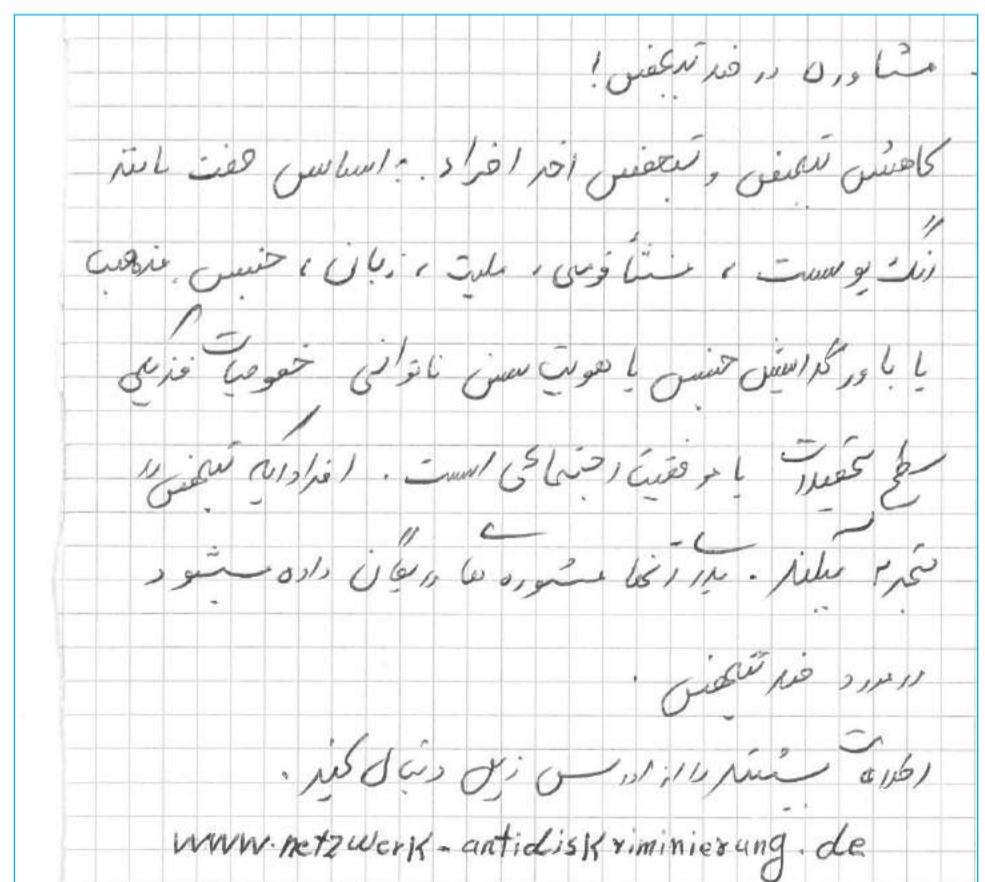 مشاوره در ضد تبعیض!
کاهش تبعیض و تبعیض افراد. به اساس هفت مانند
رنگ پوست، منشأ قومی، ملیت، زبان، جنس، مذهب
یا باور گرایش جنسی یا هویت سن ناتوانی خصوصیات فزیکی
سطح تحصیلات یا موقعیت اجتماعی است. افرادیکه تبعیض را
تجربه میکنند. برای آنها مشوره های رایگان داده میشود
در مورد ضد تبعیض.
اطلاعات بیشتر را از ادرس زیل دنبال کنید.
www.netzwerk-antidiskriminierung.de